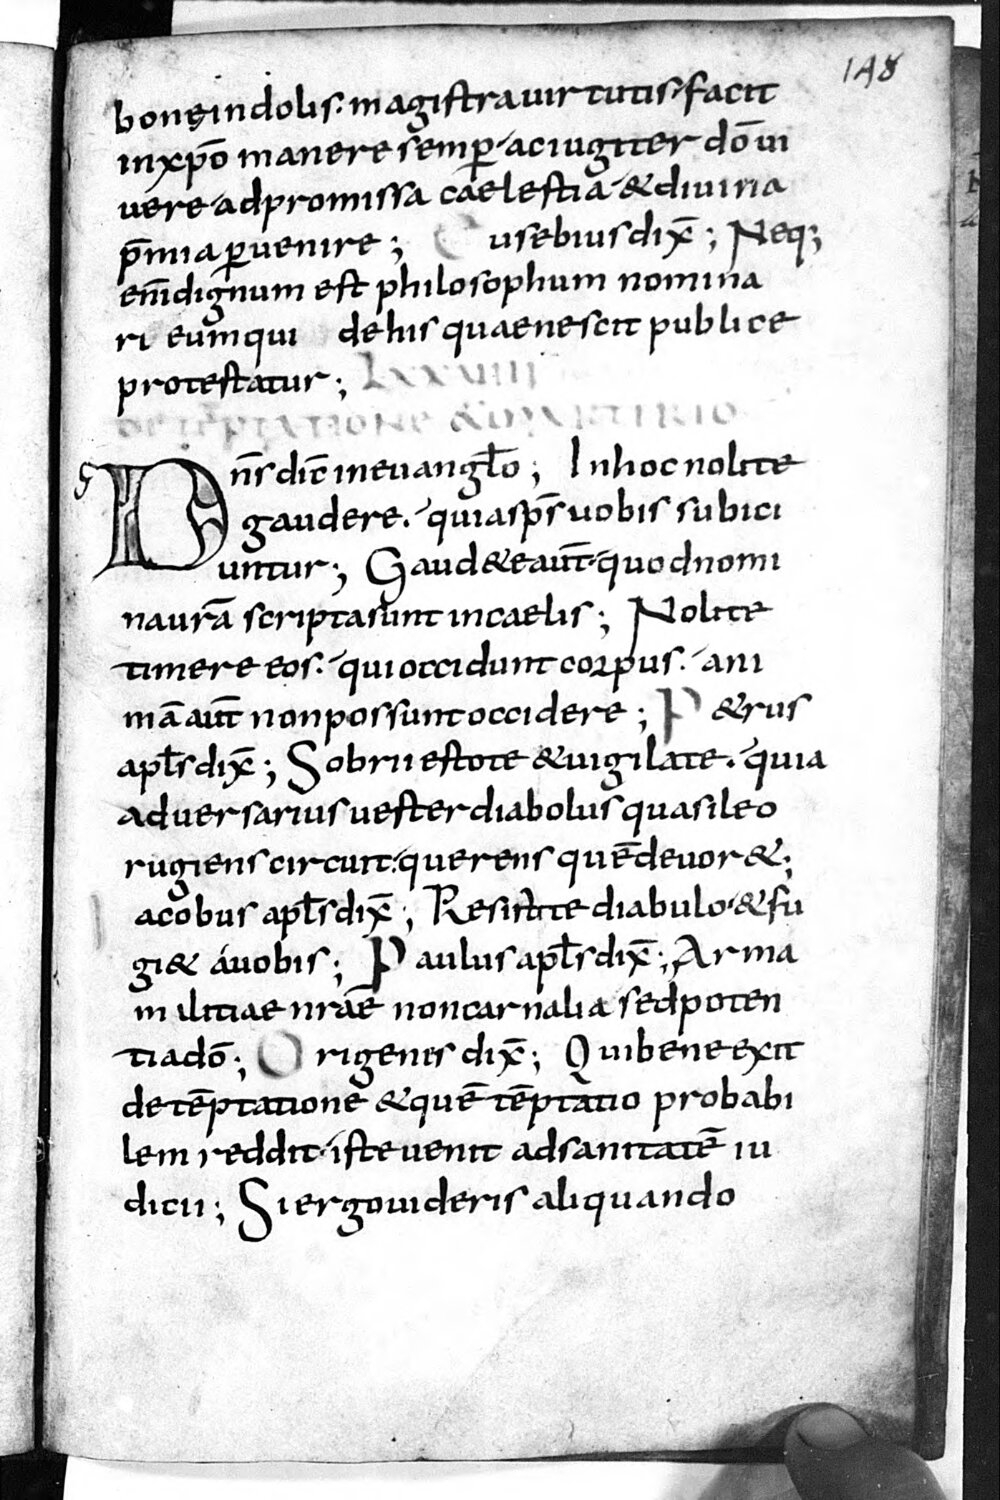 148
bonę indolis·magistra uirtutis·facit
in xp̄o manere semper·ac iugiter dō ui
uere·ad promissa caelestia·& diuina
p̄mia peruenire; Eusebius dix̄; Neq;
enī dignum est philosophum nomina
ri eum qui de his quae nescit publice
protestatur; LXXVIIII
DE TĒPTATIONE & MARTIRIO
Dn̄s dic̄ in euangl̄o; In hoc nolite
gaudere·quia sp̄s uobis subici
untur; Gaud&e aut̄·quod nomi
na ur̄a scripta sunt in caelis; Nolite
timere eos·qui occidunt corpus·ani
mā aut̄ non possunt occidere; P&rus
apl̄s dix̄; Sobrii estote & uigilate·quia
aduersarius uester diabolus quasi leo
rugiens circuit·querens quē deuor&;
Iacobus apl̄s dix̄; Resistite diabulo·& fu
gi& á uobis; Paulus apl̄s dix̄; Arma
militiae nr̄ae non carnalia sed poten
tia dō; Origenis dix̄; Qui bene exit
de tēptatione & quē tēptatio probabi
lem reddit·iste uenit ad sanitatē iu
dicii; Si ergo uideris aliquando